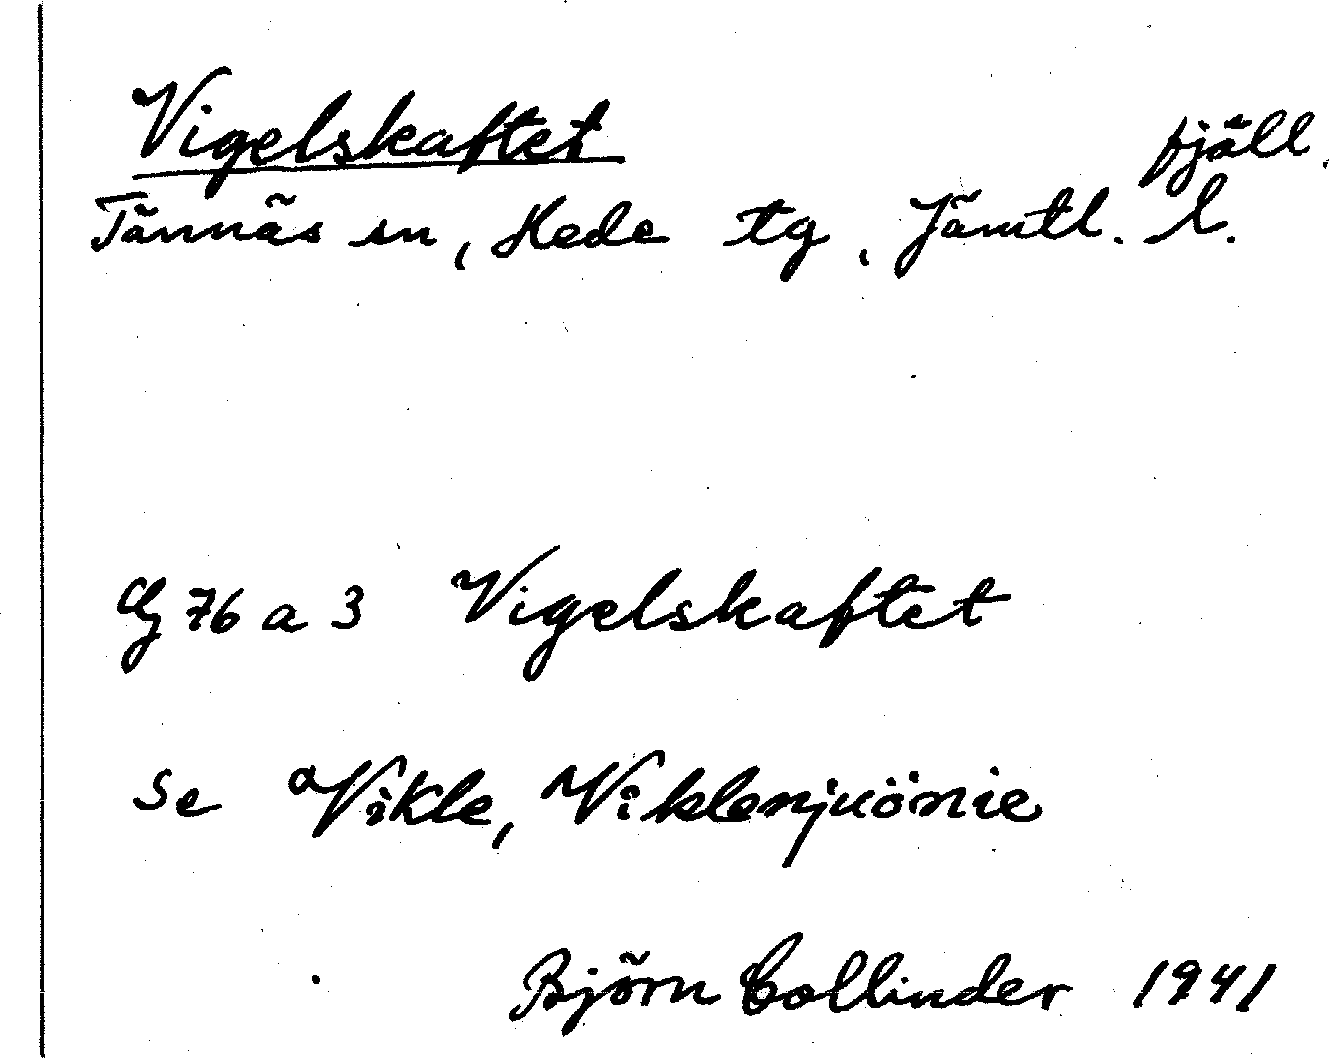 Vigelskaftet fjäll.
Tännäs sn, Hede tg, Jämtl. l.
Cg 76 a 3 Vigelskaftet
Se Vikle, Viklenjuönie
Björn Collinder 1941